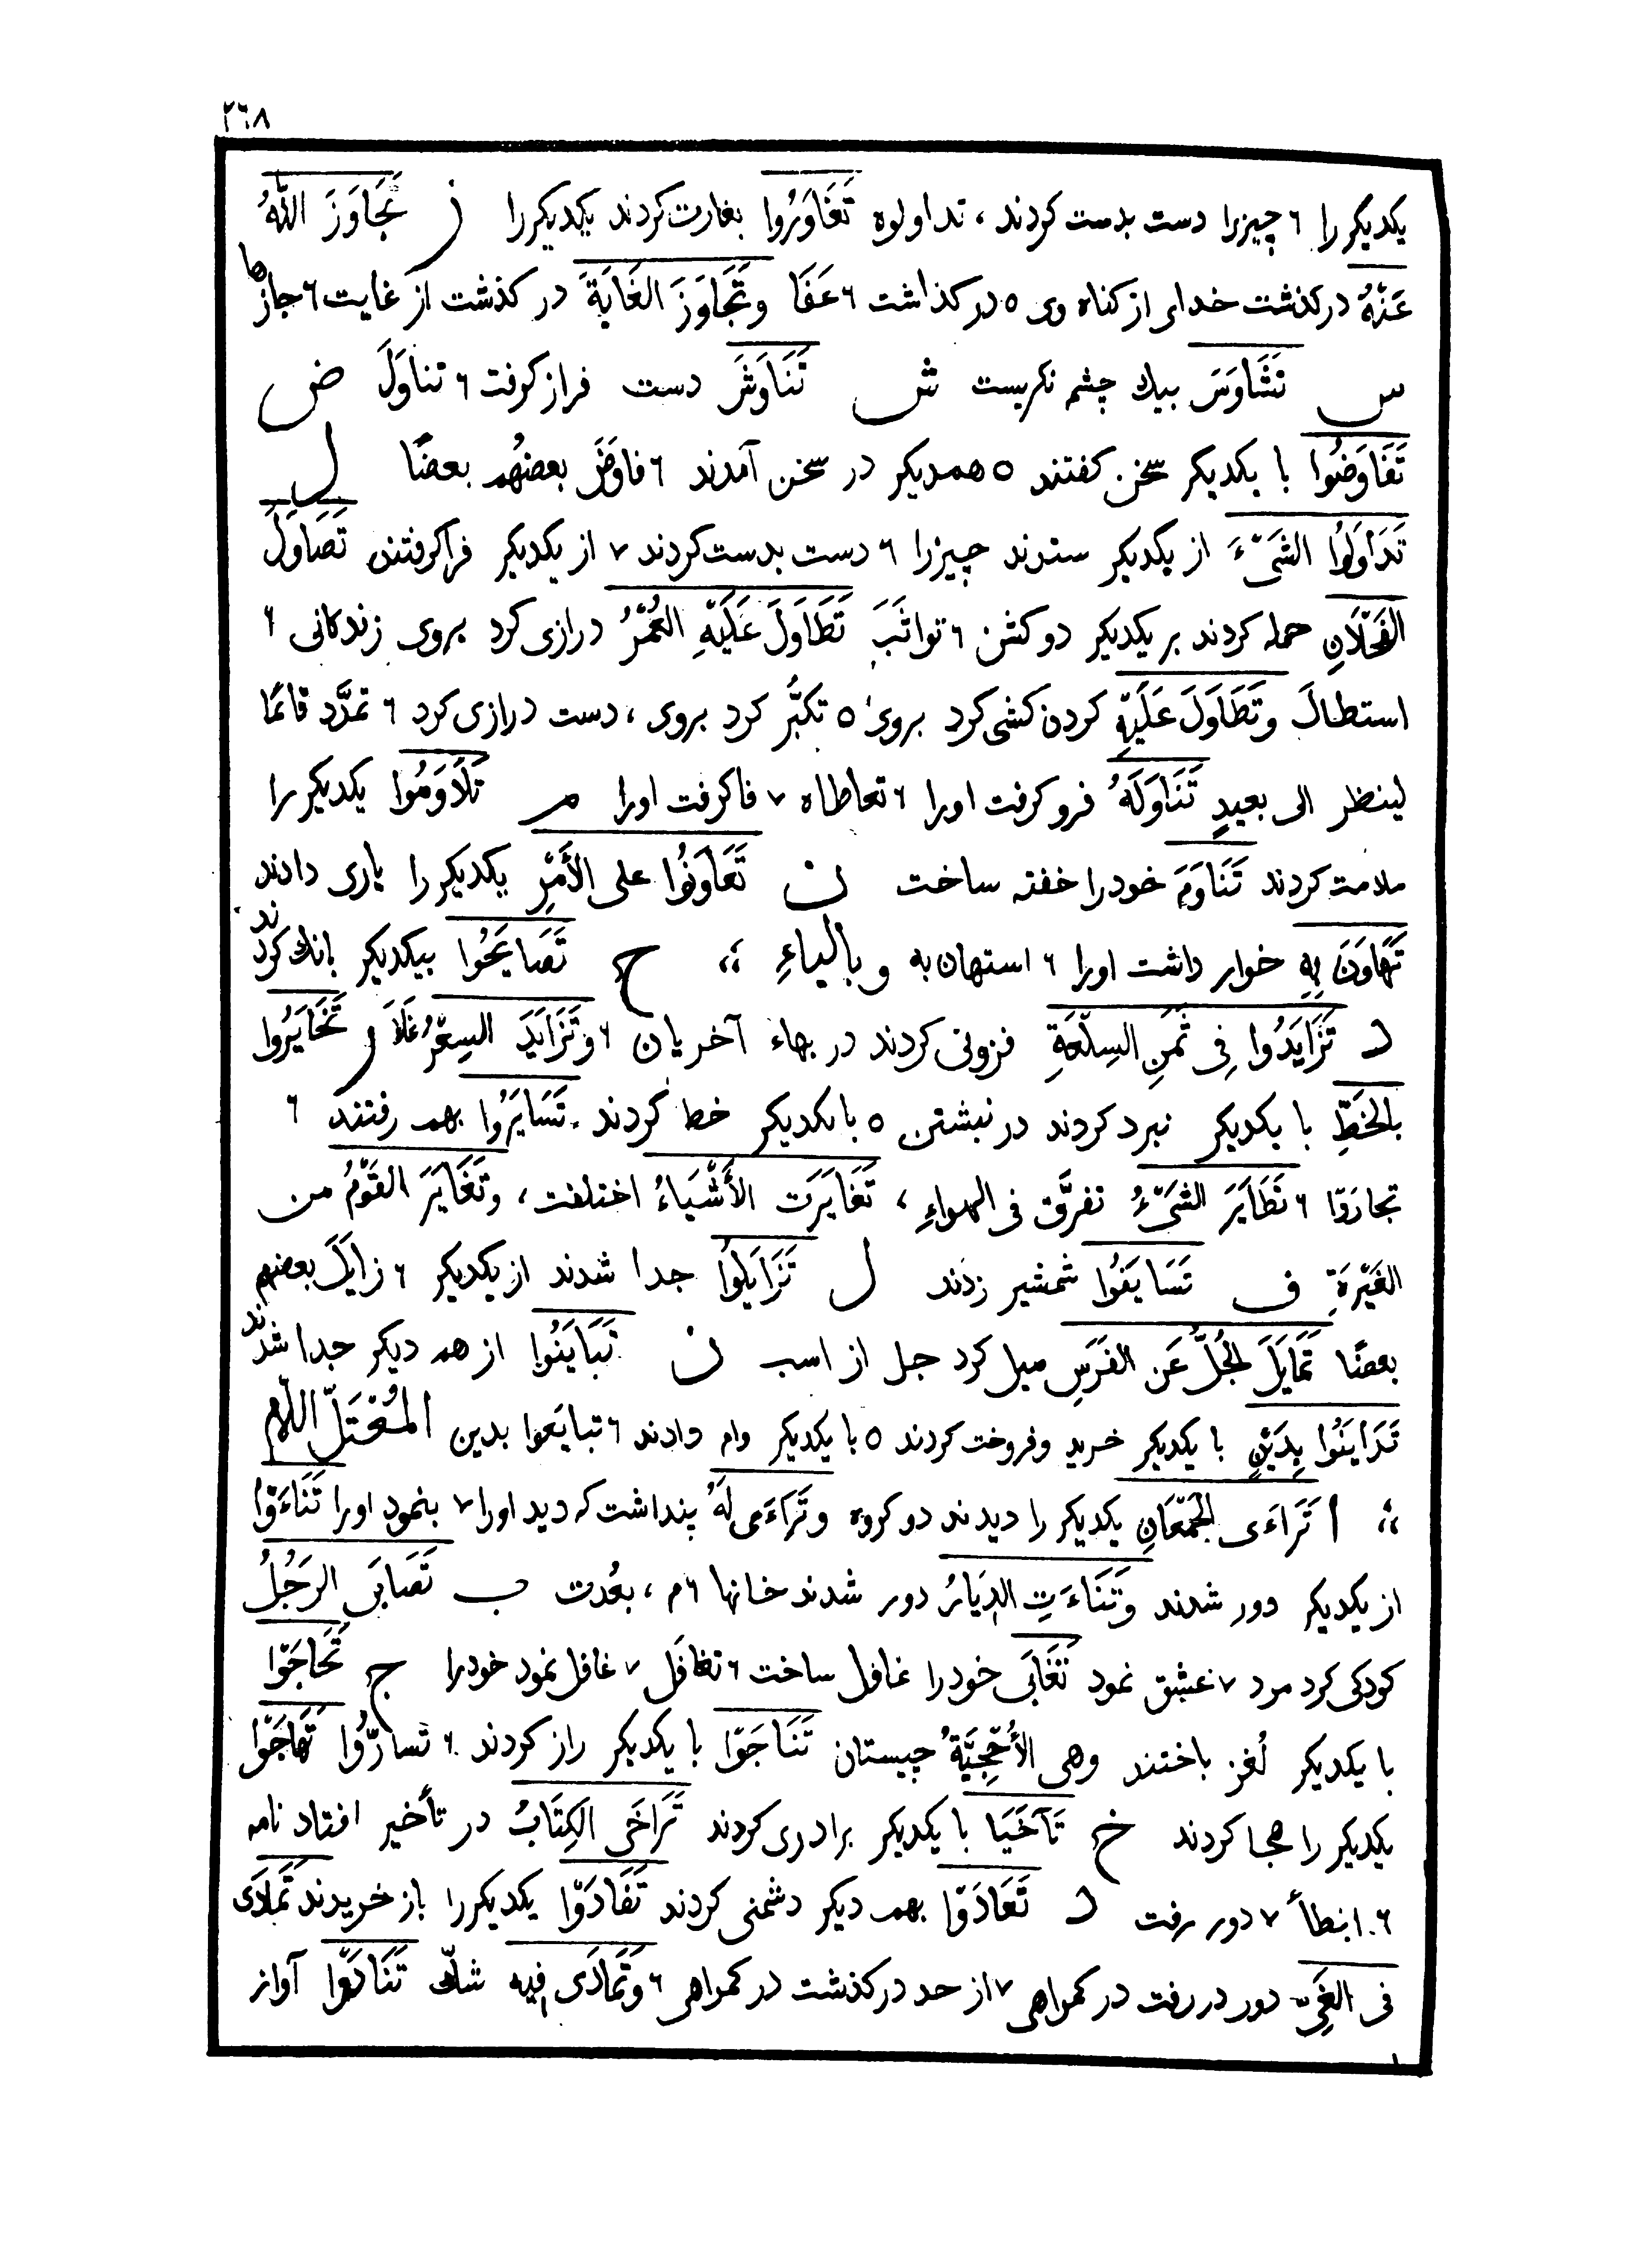 ٢٦٨
یکدیکر را ۶ چیزرا دست بدست کردند ، تداولوه تَغَاوَرُوا بغارت کردند یکدیکر را ز تَجَاوَزَ اللّٰهُ
عَنْهُ درکذشت خدای از کناه وی ٥ درکذاشت ۶ عَفَا وتَجَاوَزَ الغَايَةَ در کذشت از غایت ۶ جازها
س تَشَاوَسَ بیك چشم نکریست ش تَنَاوَشَ دست فراز کرفت ۶ تناوَلَ ض
تَفَاوَضُوا با یکدیکر سخن کفتند ٥ همدیکر در سخن آمدند ۶ فاوَضَ بعضهُم بعضًا ل
تَدَاوَلُوا الشَّيْءَ از یکدیکر ستدند چیزرا ۶ دست بدست کردند ٧ از یکدیکر فراکرفتند تَصَاوَلَ
الفَحْلَانِ حمله کردند بر یکدیکر دو کشن ۶ تواثَبَ تَطَاوَلَ عَلَيْهِ العُمْرُ درازی کرد بروی زندکانی ۶
استطالَ وتَطَاوَلَ عَلَيْهِ کردن کشی کرد بروی ٥ تکبُّر کرد بروی ، دست درازی کرد ۶ تمدَّد قائمًا
لینظر الی بعیدٍ تَنَاوَلَهُ فرو کرفت اورا ۶ تعاطاه ٧ فاکرفت اورا م تَلَاوَمُوا یکدیکر را
ملامت کردند تَنَاوَمَ خودرا خفته ساخت ن تَعَاوَنُوا علی الأَمْرِ یکدیکر را یاری دادند
تَهَاوَنَ بِهِ خوار داشت اورا ۶ استهان به وبالیاءِ ؛ ح تَصَايَحُوا بیکدیکر بانك کردند
د تَزَايَدُوا فِی ثَمَنِ السِلْعَةِ فزونی کردند در بهاء آخریان ۶ وتَزَايَدَ السِعْرُ غَلَا ر تَخَايَرُوا
بالخَطِّ با یکدیکر نبرد کردند در نبشتن ٥ با یکدیکر خط کردند . تَسَايَرُوا بهم رفتند ۶
تجارَوا ۶ تَطَايَرَ الشَيْءُ تفرَّق فی الهواءِ ، تَغَايَرَت الأَشْيَاءُ اختلفت ، وتَغَايَرَ القَوْمُ من
الغَيْرَةِ ف تَسَايَفُوا شمشیر زدند ل تَزَايَلُوا جدا شدند از یکدیکر ۶ زایَلَ بعضهم
بعضًا تَمَايَلَ الجُلُّ عَن الفَرَسِ میل کرد جل از اسب ن تَبَايَنُوا از هم دیکر جدا شدند
تَدَايَنُوا بِدَيْنٍ با یکدیکر خرید وفروخت کردند ٥ با یکدیکر وام دادند ۶ تبایَعوا بدین المُعْتَلّ اللّام
؛ أ تَرَاءَى الجَمْعَانِ یکدیکر را دیدند دو کروه وتَرَاءَى لَهُ پنداشت که دید اورا ٧ بنمود اورا تَنَاءَوْا
از یکدیکر دور شدند وتَنَاءَتِ الدِيَارُ دور شدند خانها ۶م ، بعُدت ب تَصَابَى الرَجُلُ
کودکی کرد مرد ٧ عشق نمود تَغَابَى خودرا غافل ساخت ۶ تغافَل ٧ غافل نمود خودرا ج تَحَاجَوْا
با یکدیکر لُغز باختند وهی الأُحْجِيَّةُ چیستان تَنَاجَوْا با یکدیکر راز کردند ۶ تسارُّوا تَهَاجَوْا
یکدیکر را هجا کردند خ تَآخَيَا با یکدیکر برادری کردند تَرَاخَى الكِتَابُ در تأخیر افتاد نامه
۶ ابطأ ٧ دور رفت د تَعَادَوْا بهم دیکر دشمنی کردند تَفَادَوْا یکدیکر را باز خریدند تَمَادَى
فی الغَیِّ دور در رفت در کمراهی ٧ از حد درکذشت در کمراهی ۶ وتَمَادَى فیه تَنَادَوْا آواز